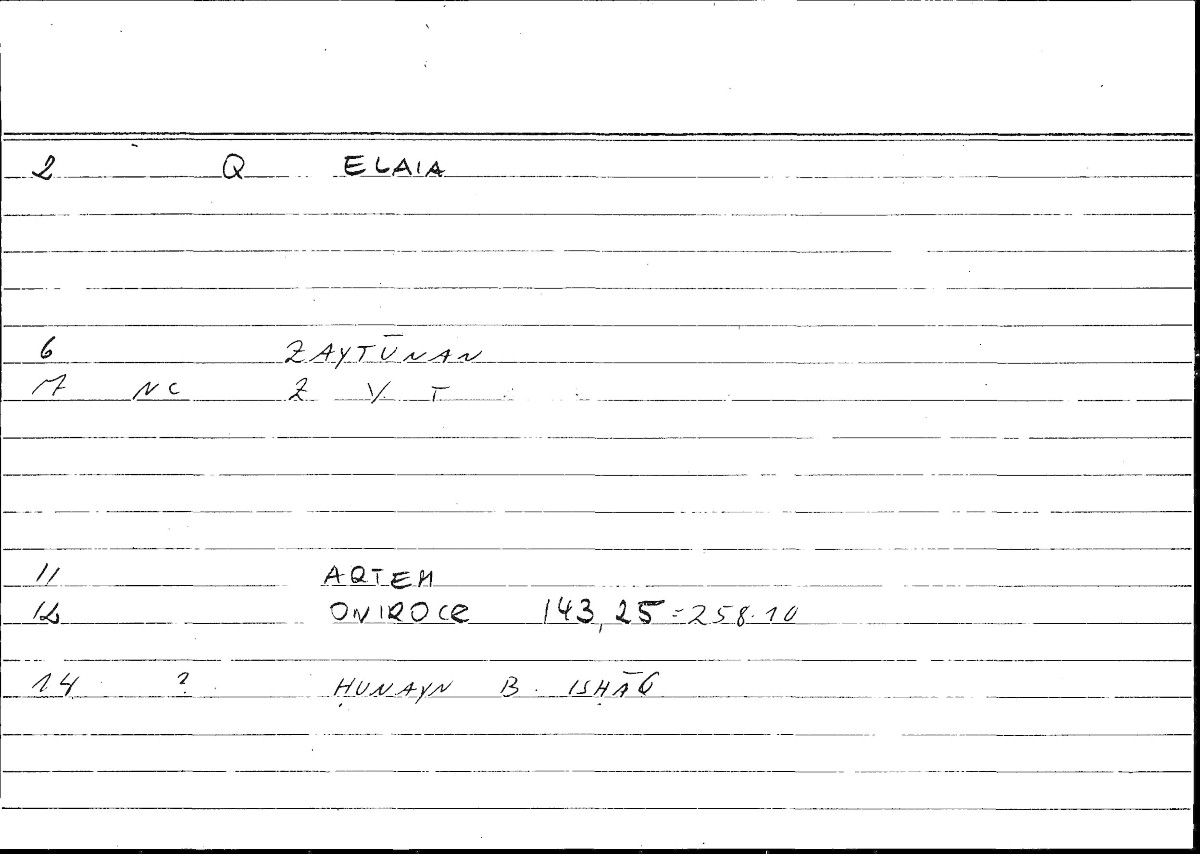 2 Q ELAIA
6 ZAYTŪNAN
7 NC Z Y T
11 ARTEM
12 ONIROCR 143,25=258.10
14 ? ḤUNAYN B. ISḤĀQ